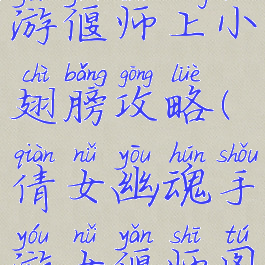 游偃师上小
chì bǎng gōng lüè
翅膀攻略(
qiàn nǚ yōu hún shǒu
倩女幽魂手
yóu nǚ yǎn shī tú
游女偃师图